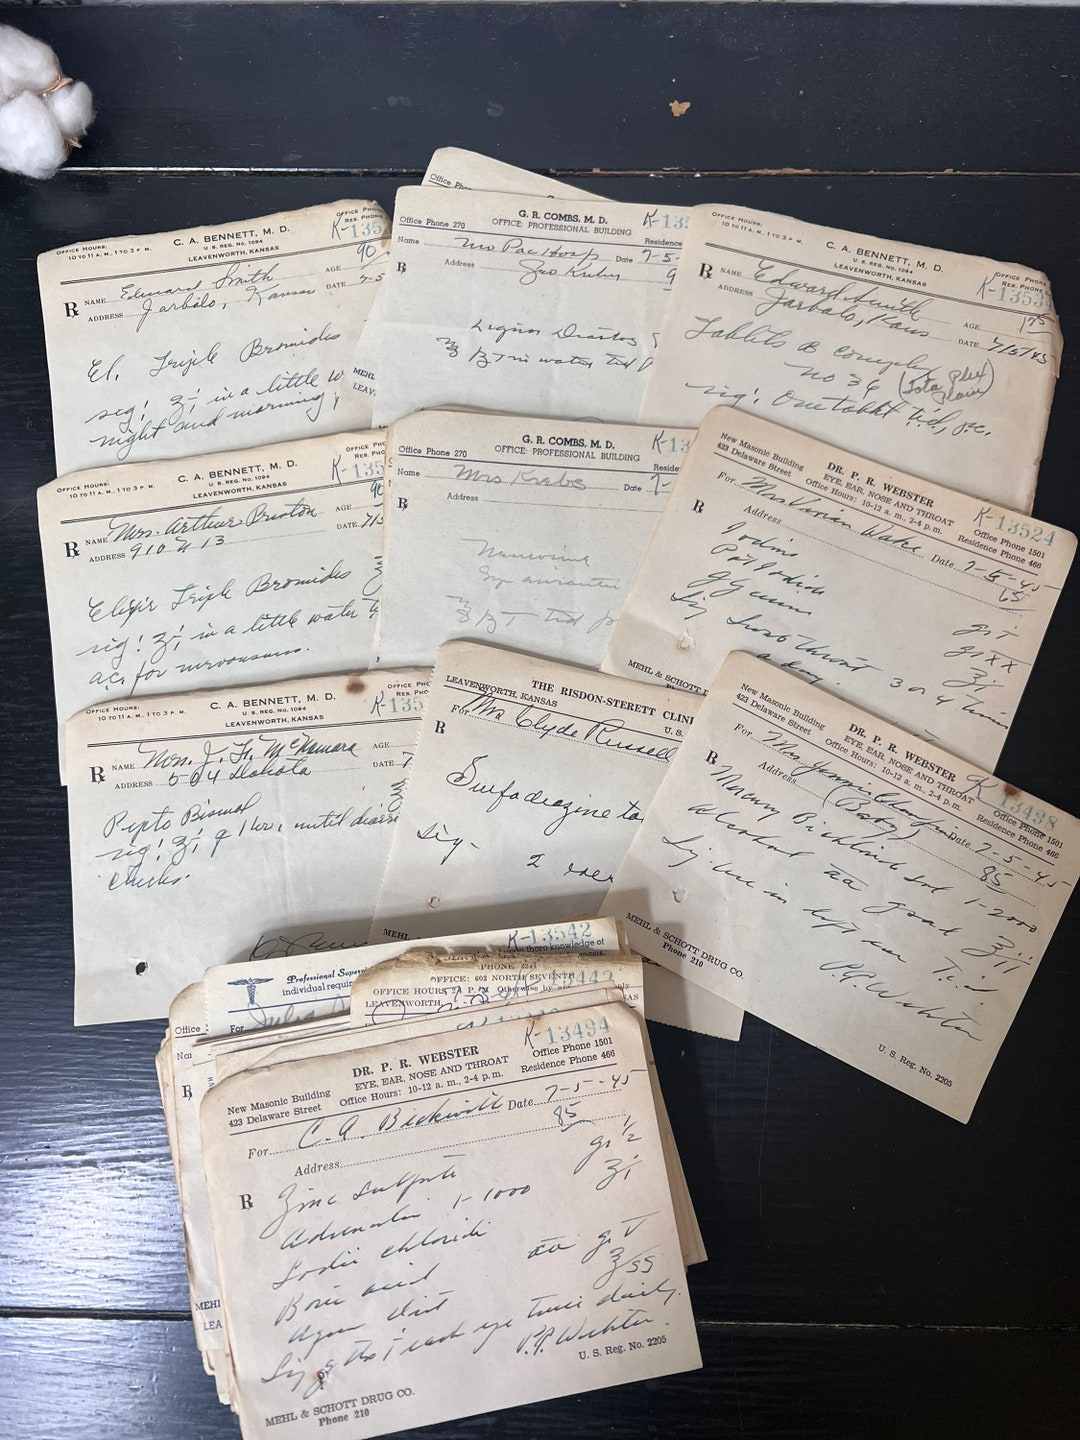 Office Pho
OFFICE HOURS:
10 TO 11 A. M., 1 TO 3 P. M.
C. A. BENNETT, M. D.
U. S. REG. NO. 1094
LEAVENWORTH, KANSAS
OFFICE PHON
RES. PHON
K-135
90
℞ NAME Edward Smith AGE
ADDRESS Jarbalo, Kansas DATE 7-5
El. Triple Bromides
sig! ʒi in a little w
night and morning
G. R. COMBS, M. D.
OFFICE: PROFESSIONAL BUILDING
Office Phone 270
K-135
Residence
Name Mo Pac Hosp Date 7-5-
℞ Address
in water tid
MEHL
LEAV
OFFICE HOURS:
10 TO 11 A. M., 1 TO 3 P. M.
C. A. BENNETT, M. D.
U. S. REG. NO. 1094
LEAVENWORTH, KANSAS
OFFICE PHON
RES. PHON
K-1353
175
℞ NAME Edward Smith AGE
ADDRESS Jarbalo, Kans DATE 7/5/45
Tablets B complex
No 36 (Tota plex
plain)
sig! One tablet t.i.d., p.c.
OFFICE HOURS:
10 TO 11 A. M., 1 TO 3 P. M.
C. A. BENNETT, M. D.
U. S. REG. NO. 1094
LEAVENWORTH, KANSAS
OFFICE PH
RES. PH
K-135
90
℞ NAME Mrs. Arthur Buxton AGE
ADDRESS 910 N 13 DATE 7/5
Elixir Triple Bromides
sig! ʒi in a little water
a.c. for nervousness.
G. R. COMBS, M. D.
OFFICE: PROFESSIONAL BUILDING
Office Phone 270
K-13
Reside
Name Mrs Krabs Date 7-
℞ Address
New Masonic Building
423 Delaware Street
DR. P. R. WEBSTER
EYE, EAR, NOSE AND THROAT
Office Hours: 10-12 a. m., 2-4 p. m.
K-13524
Office Phone 1501
Residence Phone 466
For Mrs Vivian Wake Date 7-5-45
Address 65
℞ Iodine gr i
Pot Iodide gr XX
Glycerine ʒi
Sig Swab Throat 3 or 4 times
a day
MEHL & SCHOTT D
LEAVENWORTH
OFFICE HOURS:
10 TO 11 A. M., 1 TO 3 P. M.
C. A. BENNETT, M. D.
U. S. REG. NO. 1094
LEAVENWORTH, KANSAS
OFFICE PH
RES. PH
K-135
℞ NAME Mrs. J. H. McNamara AGE
ADDRESS 504 Dakota DATE 7
Pepto Bismal
sig! ʒi q 1 hr, until diarr
checks.
THE RISDON-STERETT CLINI
LEAVENWORTH, KANSAS
U. S.
For Mrs Clyde Russell
℞
Sulfadiazine ta
Sig- 2 ever
MEHL
New Masonic Building
423 Delaware Street
DR. P. R. WEBSTER
EYE, EAR, NOSE AND THROAT
Office Hours: 10-12 a. m., 2-4 p. m.
K-13498
Office Phone 1501
Residence Phone 466
For Mrs Date 7-5-45
Address (Baby) 85
℞ Mercury Bichloride sol 1-2000
Alcohol aa
Sig use in left ear T.i.d
P.R. Webster
MEHL & SCHOTT DRUG CO.
Phone 210
U. S. Reg. No. 2205
K-13542
thoro knowledge of
Professional Supervi
individual requir
For Julia
K-13443
PHONE
OFFICE: 603 NORTH SEVENTH
OFFICE HOURS 2-4 P.M. Otherwise by
LEAVENWORTH,
Office
Nam
℞
MEHL
LEA
K-13494
DR. P. R. WEBSTER
EYE, EAR, NOSE AND THROAT
Office Hours: 10-12 a. m., 2-4 p. m.
New Masonic Building
423 Delaware Street
Office Phone 1501
Residence Phone 466
For C. A. Beckwith Date 7-5-45
Address 85
℞ Zinc Sulfate gr 1/2
Adrenalin 1-1000 ʒi
Sodii chloridi
Boric acid aa gr V
Aqua dist ℥ss
Sig gtts i each eye twice daily.
P.R. Webster
U. S. Reg. No. 2205
MEHL & SCHOTT DRUG CO.
Phone 210